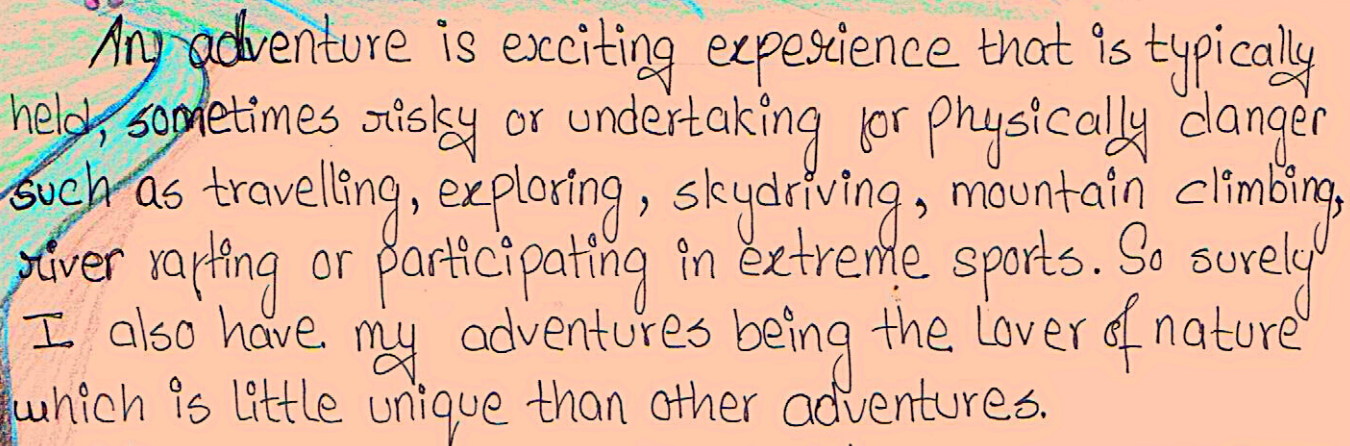 An adventure is exciting experience that is typically
held, sometimes risky or undertaking for physically danger
such as travelling, exploring, skydriving, mountain climbing,
river rafting or participating in extreme sports. So surely
I also have my adventures being the Lover of nature
which is little unique than other adventures.